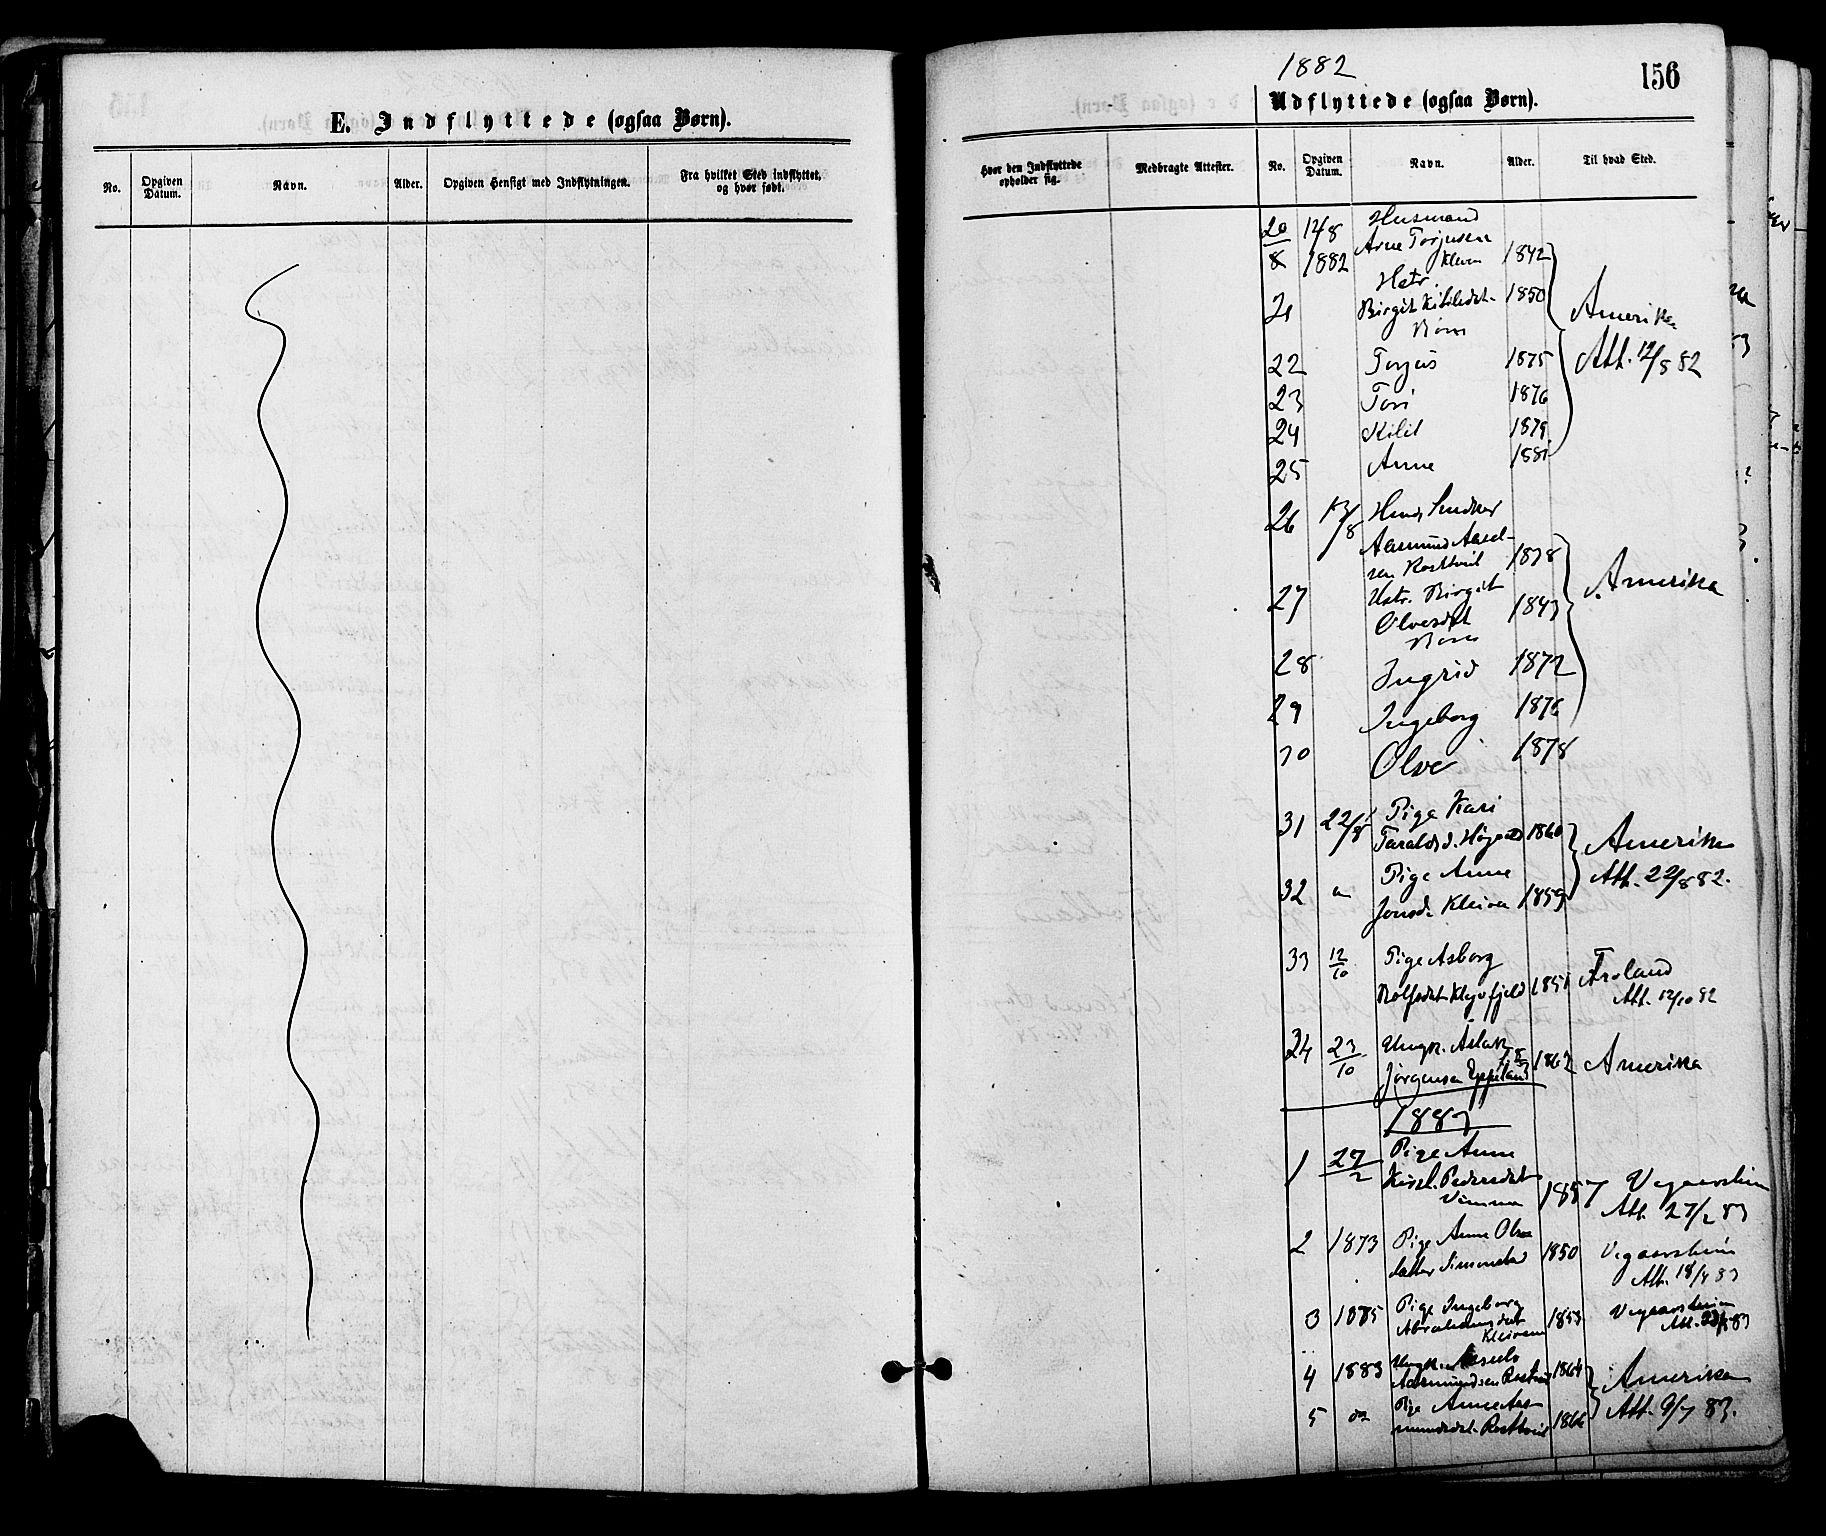 E. Indflyttede (ogsaa Børn).
No.
Opgiven Datum.
Navn.
Alder.
Opgiven Hensigt med Indflytningen.
Fra hvilket Sted indflyttet, og hvor født.
1882
156
Udflyttede (ogsaa Børn).
Hvor den Indflyttede opholder sig.
Medbragte Attester.
No.
Opgiven Datum.
Navn.
Alder.
Til hvad Sted.
20 12/8 Husmand
8 1882 Arne Torjusen
Kleven 1842
Hstr.
21 Birgit Kibilsdat. 1850 Amerika
Børn
22 Torjus 1875 Att. 12/8 82
23 Tori 1876
24 Kilil 1879
25 Anne 1881
26 13/8
Aasmund Aasel-
sen Rosttveit 1838 Amerika
27 Hstr. Birgit
Olvesdt 1843
Børn
28 Ingrid 1872
29 Ingeborg 1876
30 Olve 1878
31 22/8 Pige Kari
Taraldsd. 1860 Amerika
32 Pige Anne Att. 22/8 82.
Jonsd. Kleiven 1859
33 12/10 Pige Asborg
Rolfsdat. Klepfjeld 1851 Froland
Att. 12/10 82
34 23/10 Ungk. Aslak
Jørgensen Eppeland 1862 Amerika
1883
1 27/2 Pige Anne
Kirst. Pedersdat
1857 Vegaarsheien
Att. 27/2 83
2 1873 Pige Anne Ols-
datter Simonstad 1850 Vegaarsheien
Att. 18/4 83
3 1875 Pige Ingeborg
Abrahamsdat
Kleiven 1853 Vegaarsheien
4 1883 Ungk.
Aasmundsen Rosttveit 1864 Amerika
5 do Pige Anne Aas-
mundsdat. Rosttveit 1866 Att. 9/7 83.